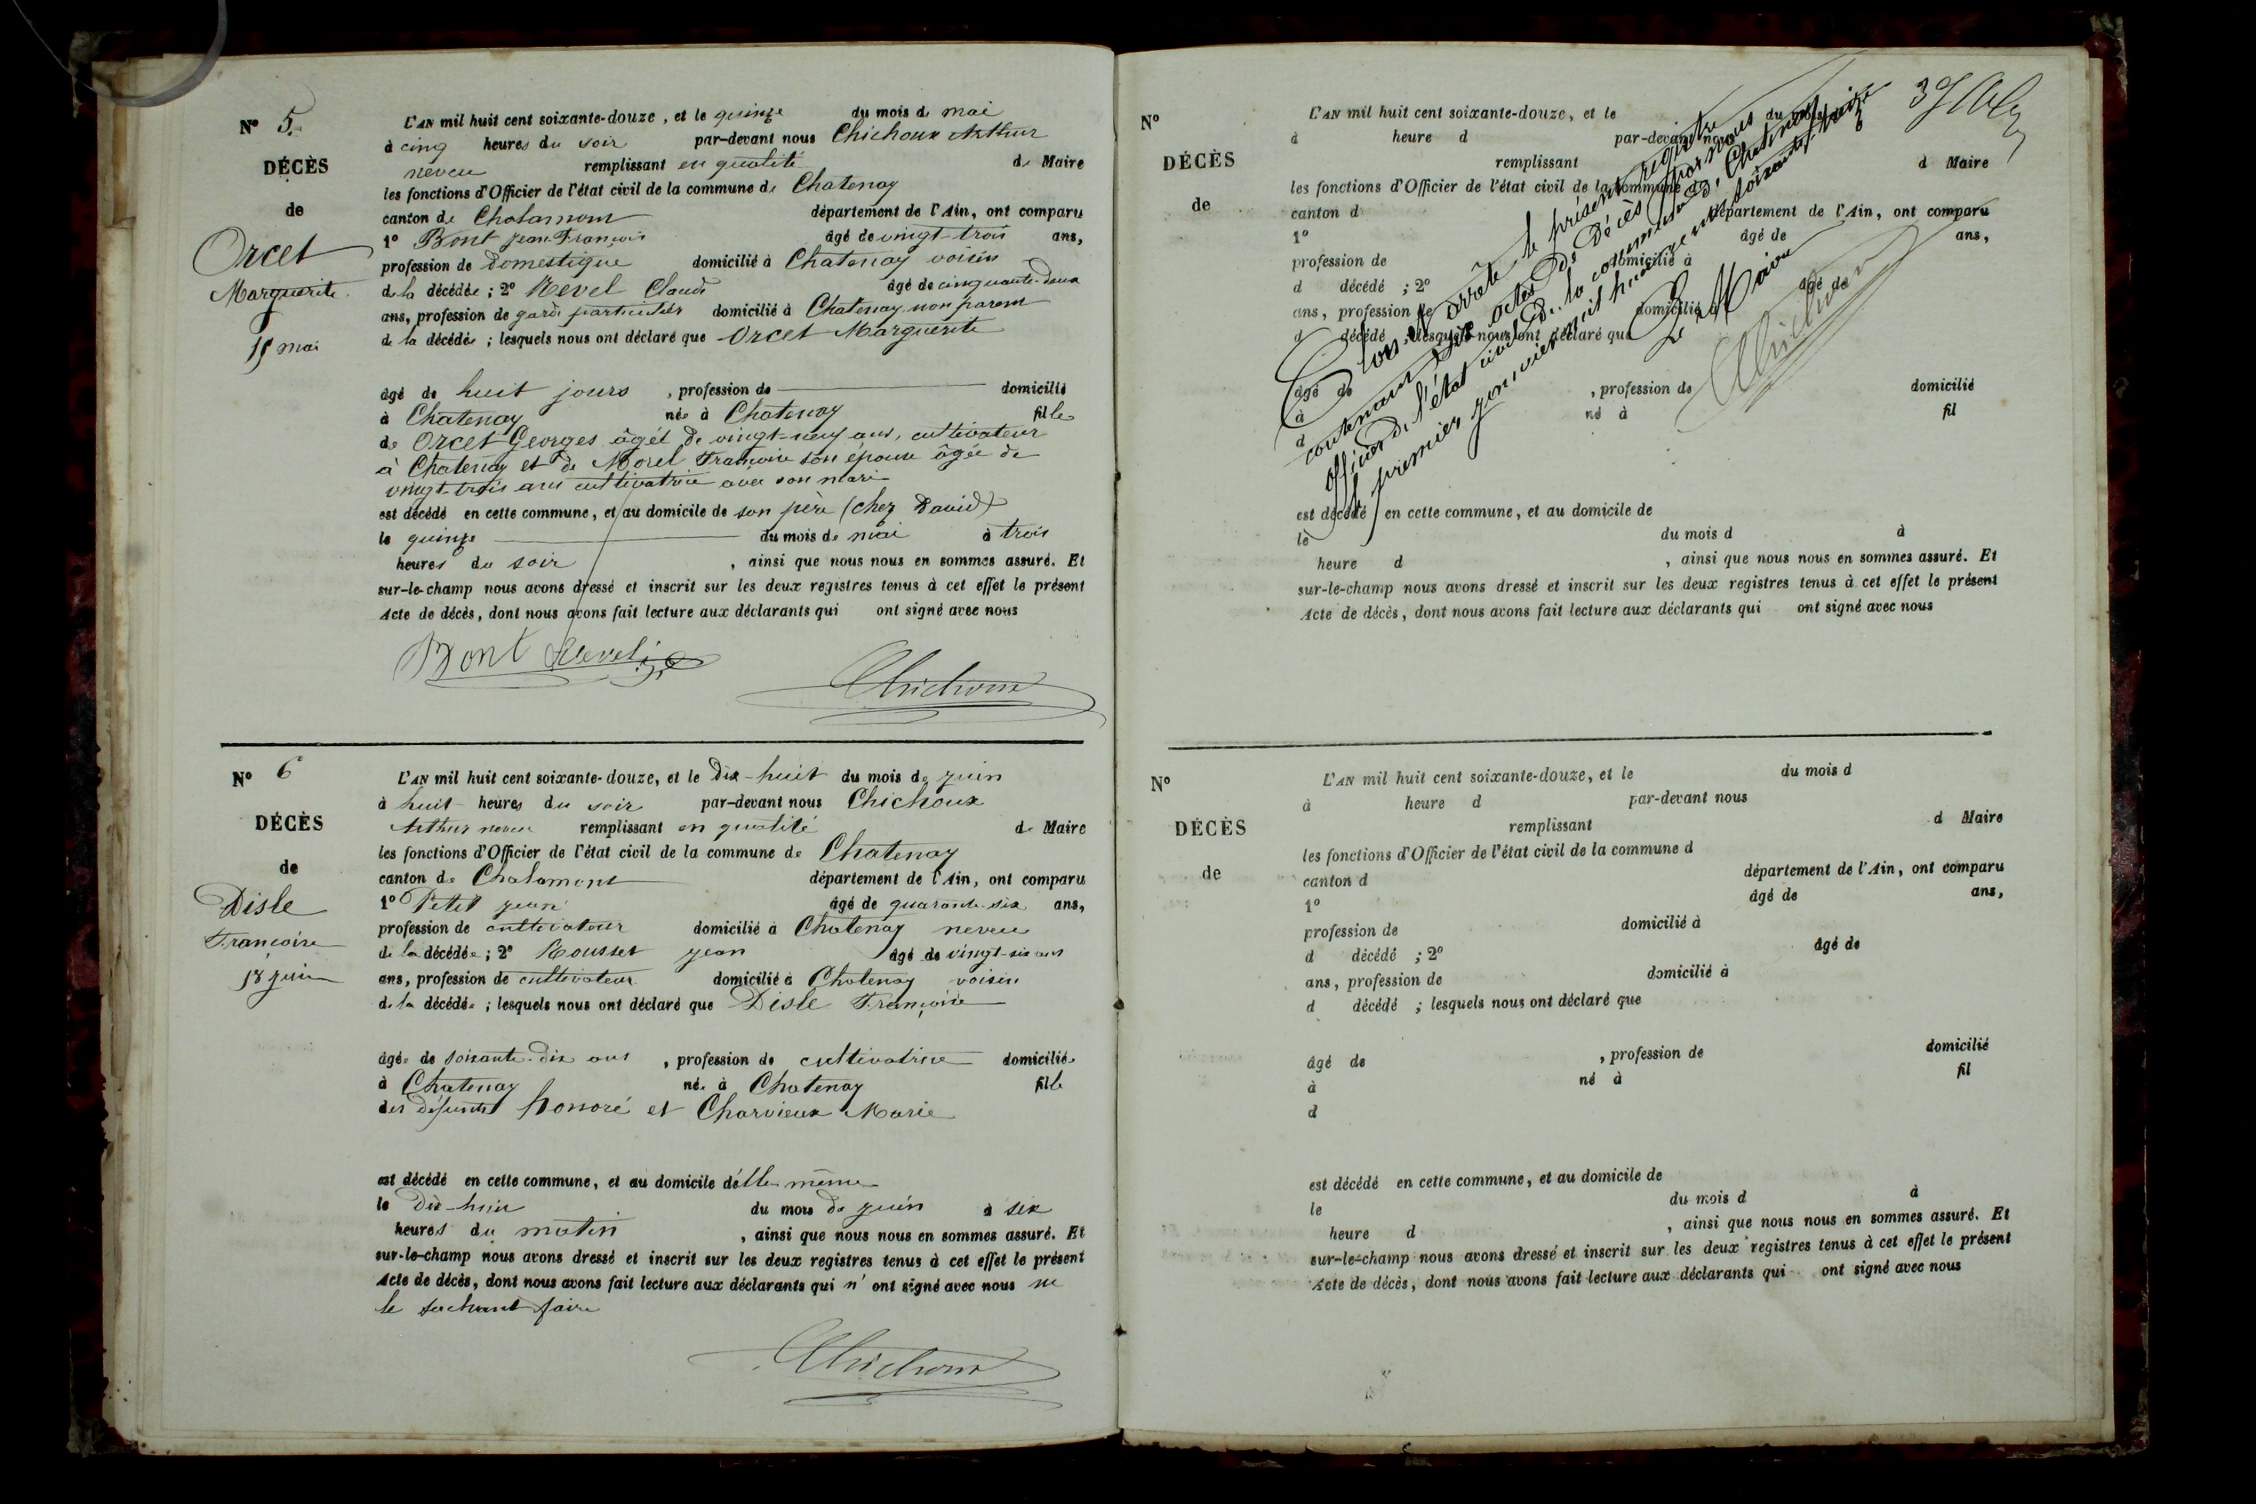 N° 5.
DÉCÈS
de
Orcet
Marguerite
15 mai
L'AN mil huit cent soixante-douze, et le quinze du mois de mai
à cinq heures du soir par-devant nous Chichoux Arthur
neveu remplissant en qualité de Maire
les fonctions d'Officier de l'état civil de la commune de Chatenay
canton de Chalamont département de l'Ain, ont comparu
1° Bont Jean-François âgé de vingt-trois ans,
profession de domestique domicilié à Chatenay voisin
de la décédée ; 2° Revel Claude âgé de cinquante-deux
ans, profession de garde particulier domicilié à Chatenay non parent
de la décédée ; lesquels nous ont déclaré que Orcet Marguerite
âgé de huit jours , profession de domicilié
à Chatenay née à Chatenay fille
de Orcet Georges âgét de vingt-neuf ans, cultivateur
à Chatenay et de Morel Françoise son épouse âgée de
vingt-trois ans cultivatrice avec son mari
est décédé en cette commune, et au domicile de son père (chez David)
le quinze du mois de mai à trois
heures du soir , ainsi que nous nous en sommes assuré. Et
sur-le-champ nous avons dressé et inscrit sur les deux registres tenus à cet effet le présent
Acte de décès, dont nous avons fait lecture aux déclarants qui ont signé avec nous
Bont Revel
Chichoux
N° 6
DÉCÈS
de
Disle
Françoise
18 juin
L'AN mil huit cent soixante-douze, et le Dix-huit du mois de juin
à huit heures du soir par-devant nous Chichoux
Arthur neveu remplissant en qualité de Maire
les fonctions d'Officier de l'état civil de la commune de Chatenay
canton de Chalamont département de l'Ain, ont comparu
1° Petit Jean âgé de quarante-six ans,
profession de cultivateur domicilié à Chatenay neveu
de la décédée ; 2° Rousset Jean âgé de vingt-six ans
ans, profession de cultivateur domicilié à Chatenay voisin
de la décédée ; lesquels nous ont déclaré que Disle Françoise
âgée de soixante-dix ans , profession de cultivatrice domiciliée
à Chatenay née à Chatenay fille
des défunts honoré et Charvieux Marie
est décédé en cette commune, et au domicile d'elle même
le Dix-huit du mois de juin à six
heures du matin , ainsi que nous nous en sommes assuré. Et
sur-le-champ nous avons dressé et inscrit sur les deux registres tenus à cet effet le présent
Acte de décès, dont nous avons fait lecture aux déclarants qui n'ont signé avec nous ne
le sachant faire
Chichoux
N°
DÉCÈS
de
L'AN mil huit cent soixante-douze, et le du mois
à heure d par-devant nous
remplissant d Maire
les fonctions d'Officier de l'état civil de la commune de
canton d département de l'Ain, ont comparu
1° âgé de ans,
profession de domicilié à
d décédé ; 2° âgé de
ans, profession de domicilié à
d décédé ; lesquels nous ont déclaré que
âgé de , profession de domicilié
à né à fil
d
est décédé en cette commune, et au domicile de
le du mois d à
heure d , ainsi que nous nous en sommes assuré. Et
sur-le-champ nous avons dressé et inscrit sur les deux registres tenus à cet effet le présent
Acte de décès, dont nous avons fait lecture aux déclarants qui ont signé avec nous
Clos et arrêté le présent registre
contenant six actes de Décès par nous
officier de l'état civil de la commune de Chatenay
le premier janvier mil huit cent soixante treize
Le Maire
Chichoux
N°
DÉCÈS
de
L'AN mil huit cent soixante-douze, et le du mois d
à heure d par-devant nous
remplissant d Maire
les fonctions d'Officier de l'état civil de la commune d
canton d département de l'Ain, ont comparu
1° âgé de ans,
profession de domicilié à
d décédé ; 2° âgé de
ans, profession de domicilié à
d décédé ; lesquels nous ont déclaré que
âgé de , profession de domicilié
à né à fil
d
est décédé en cette commune, et au domicile de
le du mois d à
heure d , ainsi que nous nous en sommes assuré. Et
sur-le-champ nous avons dressé et inscrit sur les deux registres tenus à cet effet le présent
Acte de décès, dont nous avons fait lecture aux déclarants qui ont signé avec nous